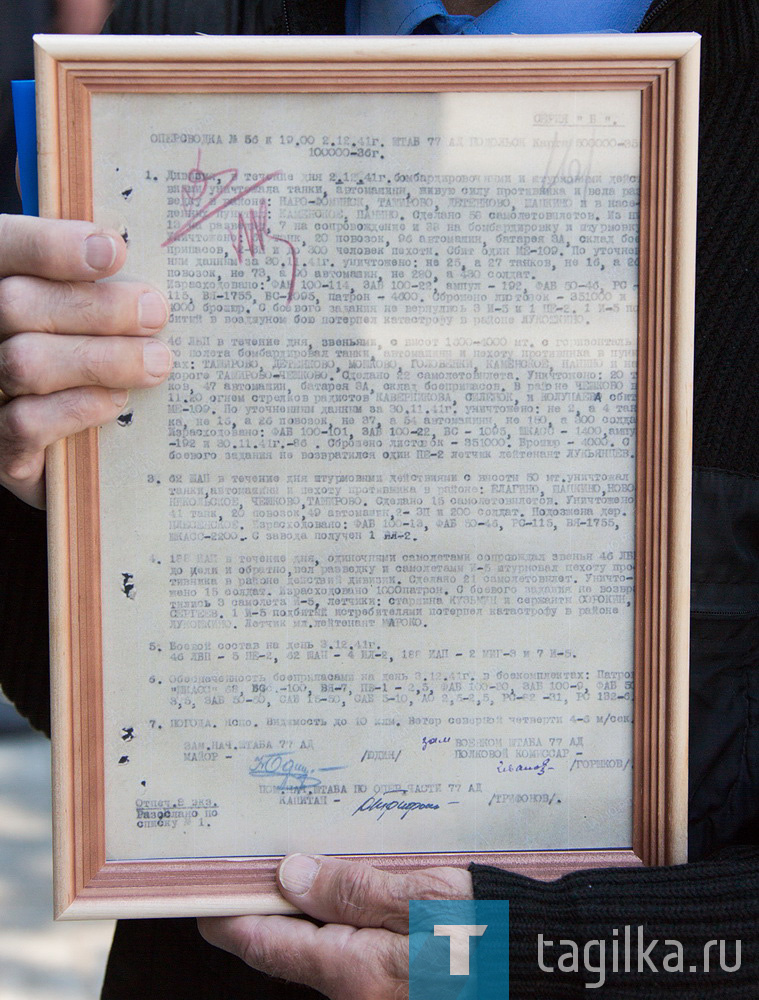 СЕРИЯ "Б".
ОПЕРСВОДКА № 56 к 19.00 2.12.41г. ШТАБ 77 АД ПОДОЛЬСК Карта 500000-35
100000-36г.
1. Дивизия, в течение дня 2.12.41г. бомбардировочными и штурмовыми дейс
виями уничтожала танки, автомашины, живую силу противника и вела раз
ведку в районе: НАРО-ФОМИНСК, ТАШИРОВО, ДЕТЕНКОВО, МАЧКИНО и в насе
ленных пунктах: КАМЕНСКОЕ, ПАКИНО. Сделано 58 самолетовылетов. Из ни
на разведку, 7 на сопровождение и 28 на бомбардировку и штурмовку
Уничтожено: танк, 20 повозок, 96 автомашин, батарея ЗА, склад бое
припасов, и до 300 человек пехоты. Сбит один МЕ-109. По уточнен
ным данным за 30.11.41г. уничтожено: не 25, а 27 танков, не 16, а 26
повозок, не 73, а 90 автомашин, не 280 а 480 солдат.
Израсходовано: ФАБ 100-114, ЗАБ 100-22, ампул - 192, ФАБ 50-46, РС -
115, ВЯ-1755, БС-1095, патрон - 4600. Сброшено листовок - 351000 и
4000 брошюр. С боевого задания не вернулись 3 И-5 и 1 ПЕ-2. 1 И-5 по
битый в воздушном бою потерпел катастрофу в районе ЛУКОШКИНО.
46 ЛБП в течение дня, звеньями, с высот 1300-4000 мт. с горизонталь
го полета бомбардировал танки, автомашины и пехоту противника в пунк
тах: ТАШИРОВО, ДЕТЕНКОВО, МОЯКОВО, ГОЛОВЕНЬКИ, КАМЕНСКОЕ, ПАКИНО и на
дороге ТАШИРОВО-ЧЕШКОВО. Сделано 22 самолетовылета. Уничтожено: 20 т
ков, 47 автомашин, батарея ЗА, склад боеприпасов. В районе ЧЕШКОВО в
11.20 огнем стрелков радистов КАВЕРНИКОВА, и сбит
МЕ-109. По уточненным данным за 30.11.41г. уничтожено: не 2, а 4 тан
ка, не 16, а 26 повозок, не 37, а 54 автомашин, не 180, а 300 солда
Израсходовано: ФАБ 100-101, ЗАБ 100-22, БС - 1095, ШКАСС - 1400, ампу
-192 и 30.11.41г.-86 . Сброшено листовок - 351000, Брошюр - 4000. С
боевого задания не возвратился один ПЕ-2 летчик лейтенант ЛУКЬЯНЦЕВ.
3. 62 ШАП в течение дня штурмовыми действиями с высоты 50 мт. уничтожал
танки, автомашины и пехоту противника в районе: ЕЛАГИНО, МАЧКИНО, НОВО-
НИКОЛЬСКОЕ, ЧЕШКОВО, ТАШИРОВО. Сделано 15 самолетовылетов. Уничтожено
41 танк, 20 повозок, 49 автомашин, 2- ЗП и 200 солдат. Подожжена дер.
Израсходовано: ФАБ 100-13, ФАБ 50-46, РС-115, ВЯ-1755,
ШКАСС-2200. С завода получен 1 ИЛ-2.
4. 188 ИАП в течение дня, одиночными самолетами сопровождал звенья 46 ЛБП
до цели и обратно, вел разведку и самолетами И-5 штурмовал пехоту про
тивника в районе действий дивизии. Сделано 21 самолетовылет. Уничто-
жено 15 солдат. Израсходовано 1000 патрон. С боевого задания на возвра
тились 3 самолета И-5, летчики: старшина КУЗЬМИН и сержанты СОРОКИН,
1 И-5 подбитый истребителями потерпел катастрофу в районе
ЛУКОШКИНО. Летчик мл.лейтенант МАРОКО.
5. Боевой состав на день 3.12.41г.
46 ЛБП - 5 ПЕ-2, 62 ШАП - 4 ИЛ-2, 188 ИАП - 2 МИГ-3 и 7 И-5.
6. Обеспеченность боеприпасами на день 3.12.41г. в боекомплектах: Патрон
"ШКАСС" 68, -100, ВЯ-7, ПЕ-1 - 2,5, ФАБ 100-20, ЗАБ 100-9, ФАБ 50
3,5, ЗАБ 50-50, САБ 15-50, САБ 3-10, АО 2,5-2,5, РО-82 -31, РС 132-6.
7. ПОГОДА. Ясно. Видимость до 10 клм. Ветер северной четверти 4-6 м/сек.
ЗАМ.НАЧ.ШТАБА 77 АД зам ВОЕНКОМ ШТАБА 77 АД
МАЙОР - /ЮДИН/ ПОЛКОВОЙ КОМИССАР -
/ГОРШКОВ/.
ПОМ.НАЧ.ШТАБА ПО ОПЕР.ЧАСТИ 77 АД
КАПИТАН - /ТРИФОНОВ/.
Отпеч.8 экз.
Разослано по
списку № 1.
T tagilka.ru